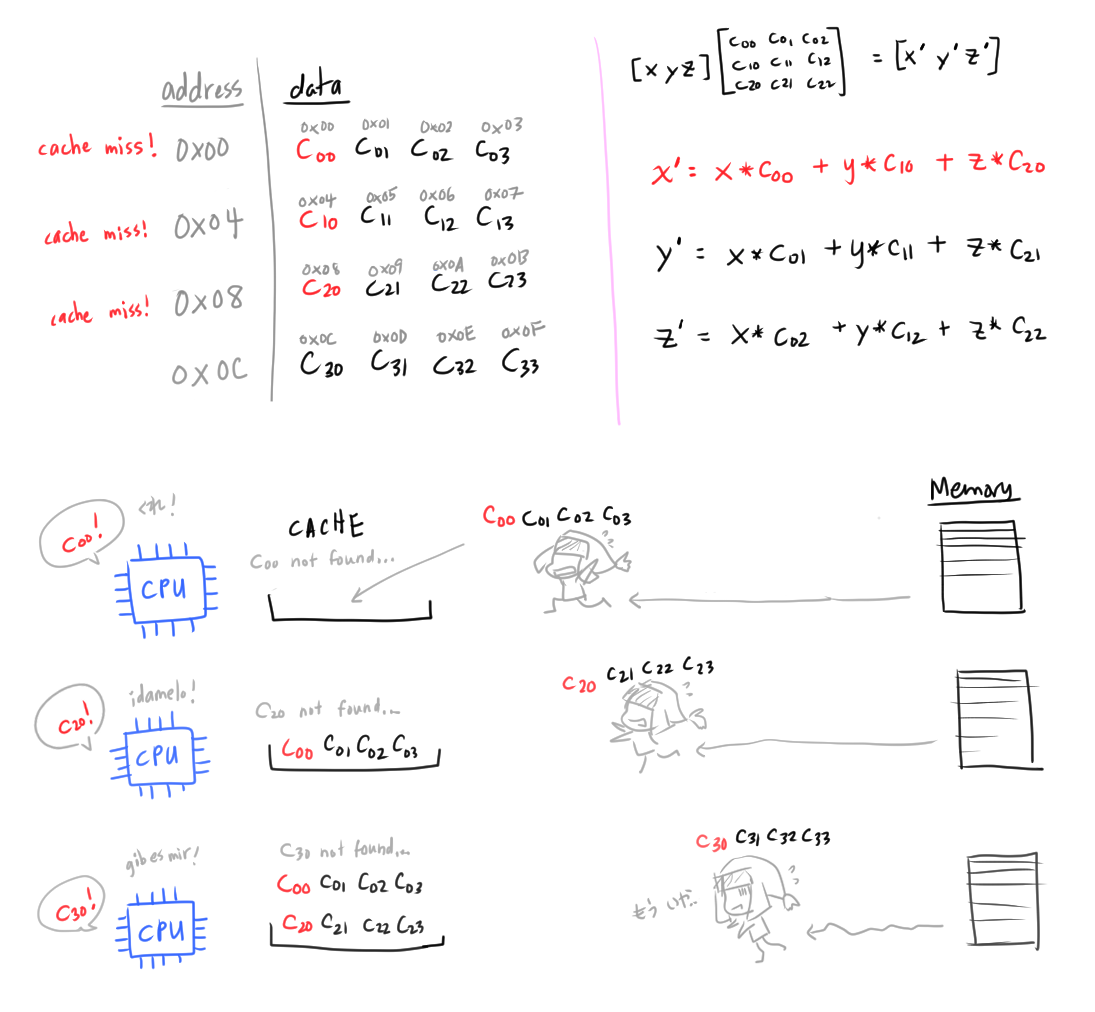 address data
cache miss! 0x00
0x00 0x01 0x02 0x03
C00 C01 C02 C03
cache miss! 0x04
0x04 0x05 0x06 0x07
C10 C11 C12 C13
cache miss! 0x08
0x08 0x09 0x0A 0x0B
C20 C21 C22 C23
0x0C
0x0C 0x0D 0x0E 0x0F
C30 C31 C32 C33
[x y z] [C00 C01 C02
C10 C11 C12
C20 C21 C22] = [x' y' z']
x' = x*C00 + y*C10 + z*C20
y' = x*C01 + y*C11 + z*C21
z' = x*C02 + y*C12 + z*C22
C00!
くれ!
CPU
CACHE
C00 not found...
C00 C01 C02 C03
Memory
C20!
¡damelo!
CPU
C20 not found...
C00 C01 C02 C03
C20 C21 C22 C23
C30!
gib es mir!
CPU
C30 not found...
C00 C01 C02 C03
C20 C21 C22 C23
C30 C31 C32 C33
もう いだ..